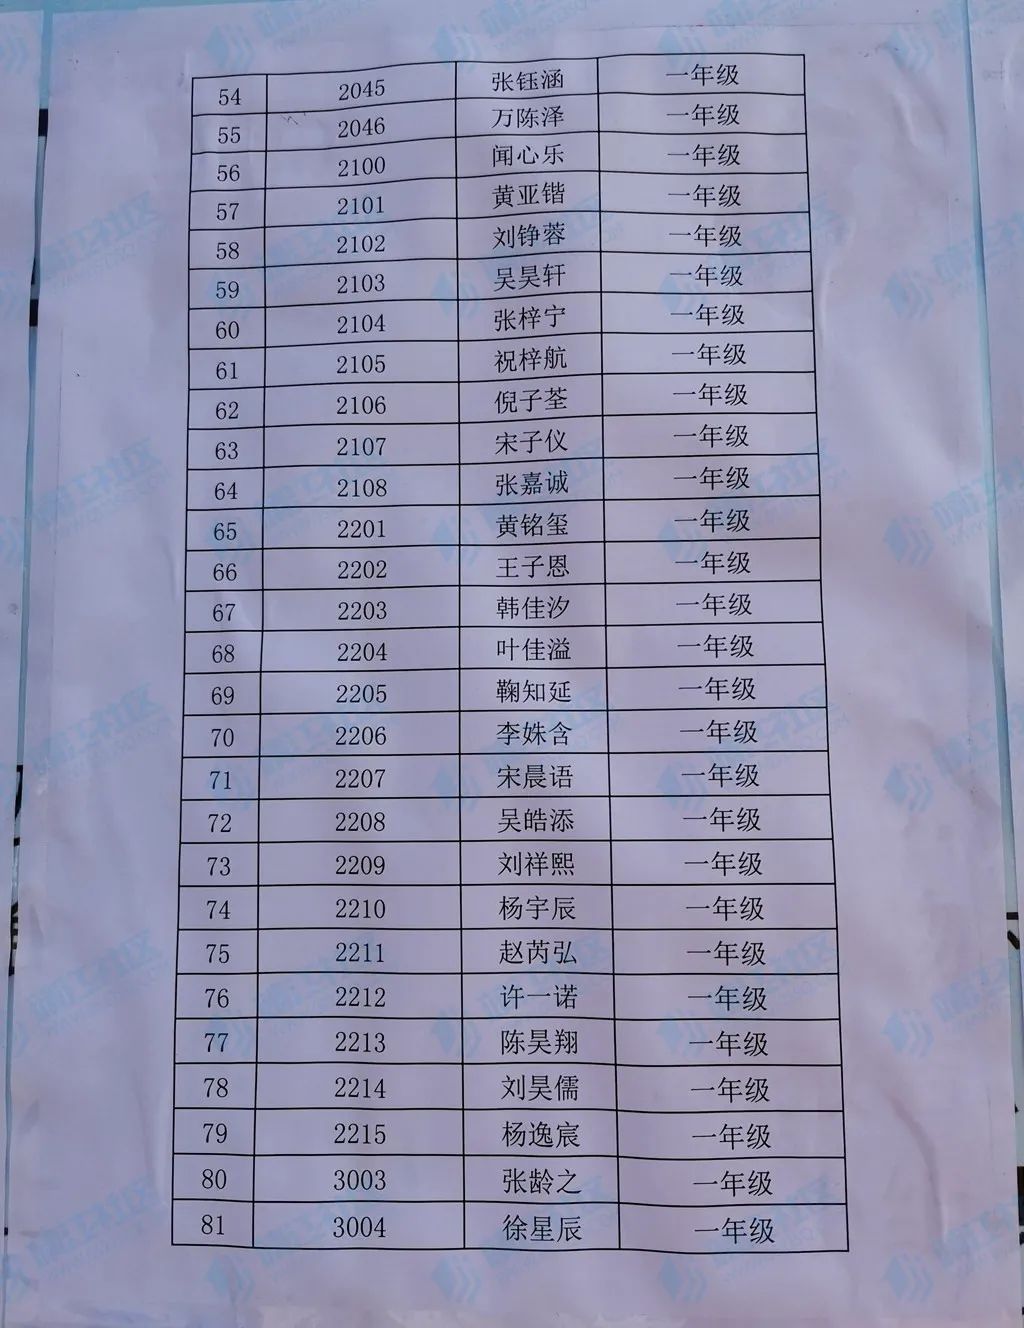 54 2045 张钰涵 一年级
55 2046 万陈泽 一年级
56 2100 闻心乐 一年级
57 2101 黄亚锴 一年级
58 2102 刘铮蓉 一年级
59 2103 吴昊轩 一年级
60 2104 张梓宁 一年级
61 2105 祝梓航 一年级
62 2106 倪子荃 一年级
63 2107 宋子仪 一年级
64 2108 张嘉诚 一年级
65 2201 黄铭玺 一年级
66 2202 王子恩 一年级
67 2203 韩佳汐 一年级
68 2204 叶佳溢 一年级
69 2205 鞠知延 一年级
70 2206 李姝含 一年级
71 2207 宋晨语 一年级
72 2208 吴皓添 一年级
73 2209 刘祥熙 一年级
74 2210 杨宇辰 一年级
75 2211 赵芮弘 一年级
76 2212 许一诺 一年级
77 2213 陈昊翔 一年级
78 2214 刘昊儒 一年级
79 2215 杨逸宸 一年级
80 3003 张龄之 一年级
81 3004 徐星辰 一年级